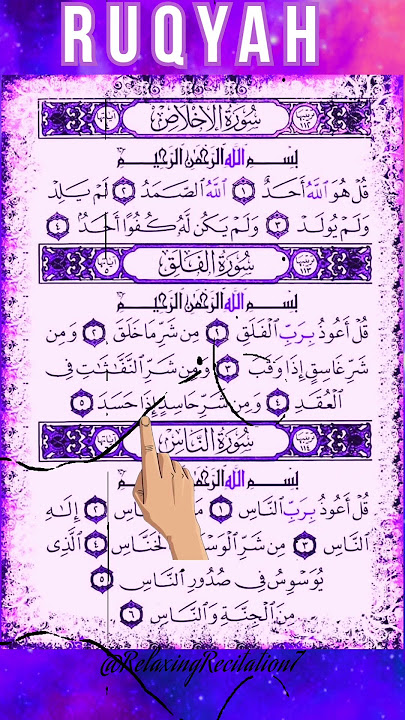 RUQYAH
سُورَةُ الْإِخْلَاصِ
بِسْمِ اللَّهِ الرَّحْمَٰنِ الرَّحِيمِ
قُلْ هُوَ اللَّهُ أَحَدٌ ١ اللَّهُ الصَّمَدُ ٢ لَمْ يَلِدْ
وَلَمْ يُولَدْ ٣ وَلَمْ يَكُن لَّهُ كُفُوًا أَحَدٌ ٤
سُورَةُ الْفَلَقِ
بِسْمِ اللَّهِ الرَّحْمَٰنِ الرَّحِيمِ
قُلْ أَعُوذُ بِرَبِّ الْفَلَقِ ١ مِن شَرِّ مَا خَلَقَ ٢ وَمِن
شَرِّ غَاسِقٍ إِذَا وَقَبَ ٣ وَمِن شَرِّ النَّفَّٰثَٰتِ فِي
الْعُقَدِ ٤ وَمِن شَرِّ حَاسِدٍ إِذَا حَسَدَ ٥
سُورَةُ النَّاسِ
بِسْمِ اللَّهِ الرَّحْمَٰنِ الرَّحِيمِ
قُلْ أَعُوذُ بِرَبِّ النَّاسِ ١ ٢ إِلَٰهِ
النَّاسِ ٣ مِن شَرِّ الْوَسْوَاسِ الْخَنَّاسِ ٤ الَّذِي
يُوَسْوِسُ فِي صُدُورِ النَّاسِ ٥
مِنَ الْجِنَّةِ وَالنَّاسِ ٦
@RelaxingRecitation7